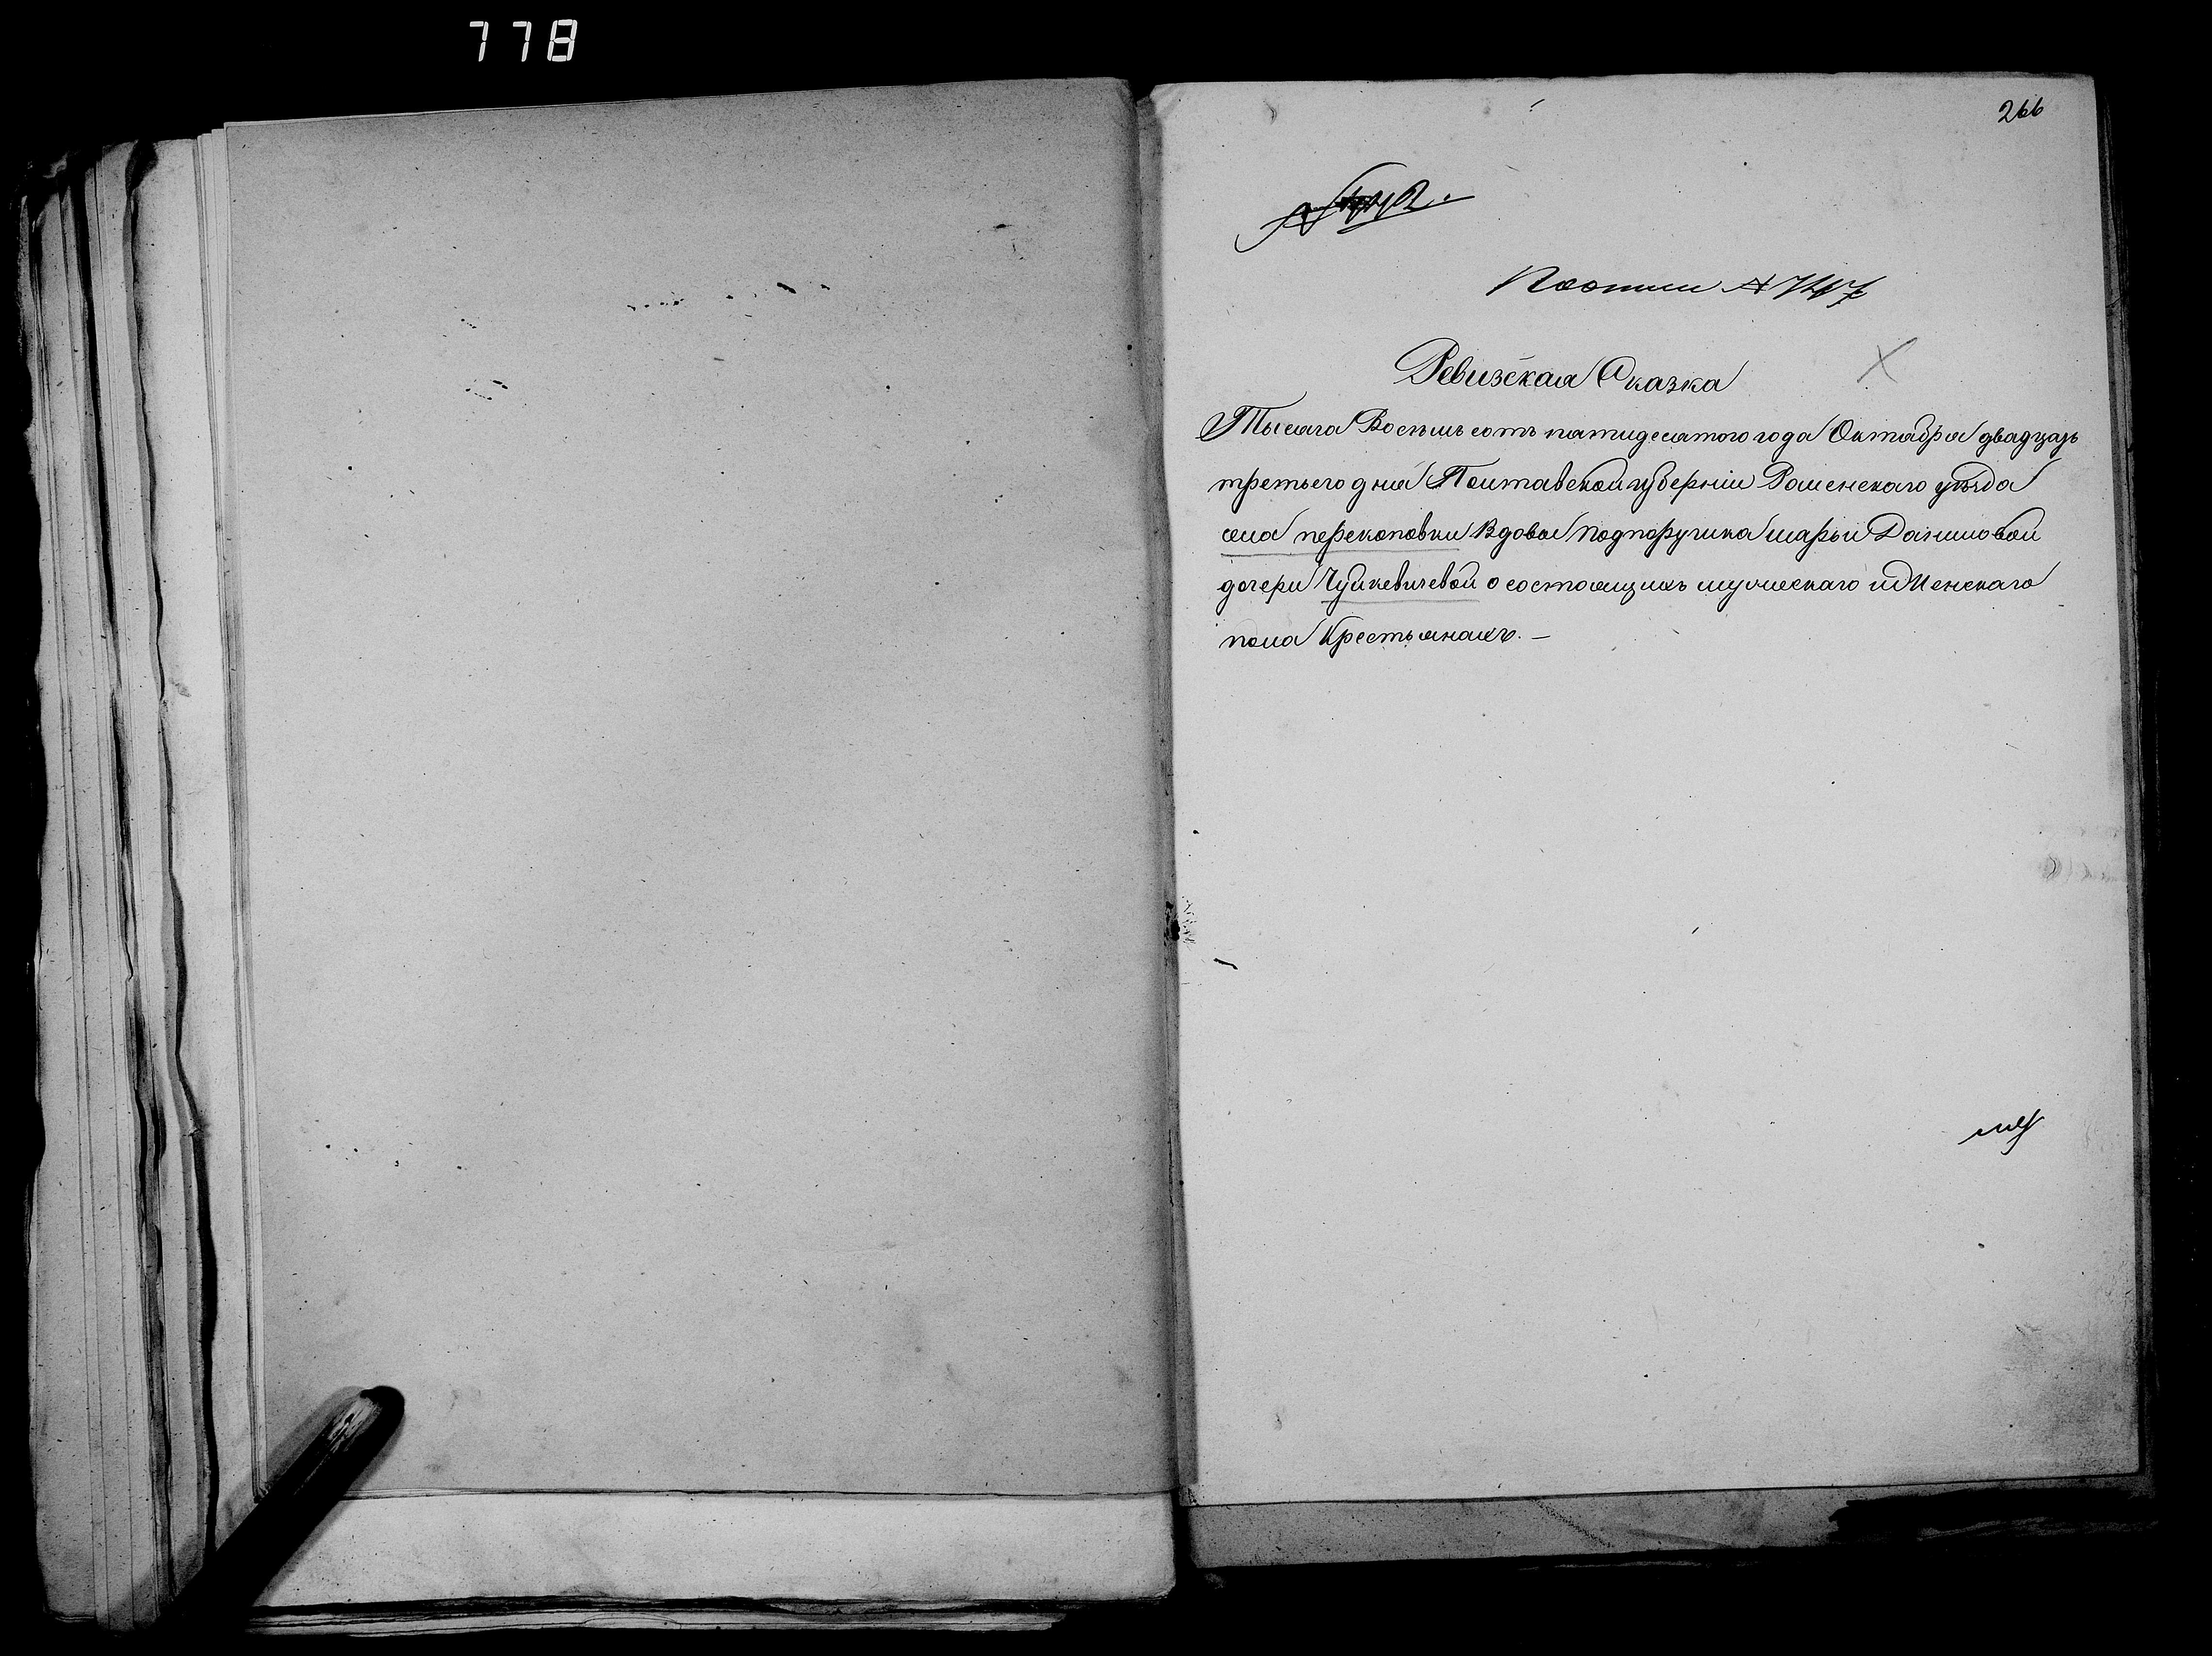 778
266
Ревизская Сказка
Тысяча Восемь сотъ пятидесятого года Октября двадцать
третьего дня Полтавской губерніи Роменского уѣзда
села перекоповки Вдовы подпоручика марьи Даниловой
дочери Чуйкевичевой о состоящихъ мужескаго и Женскаго
пола Крестьянахъ. —